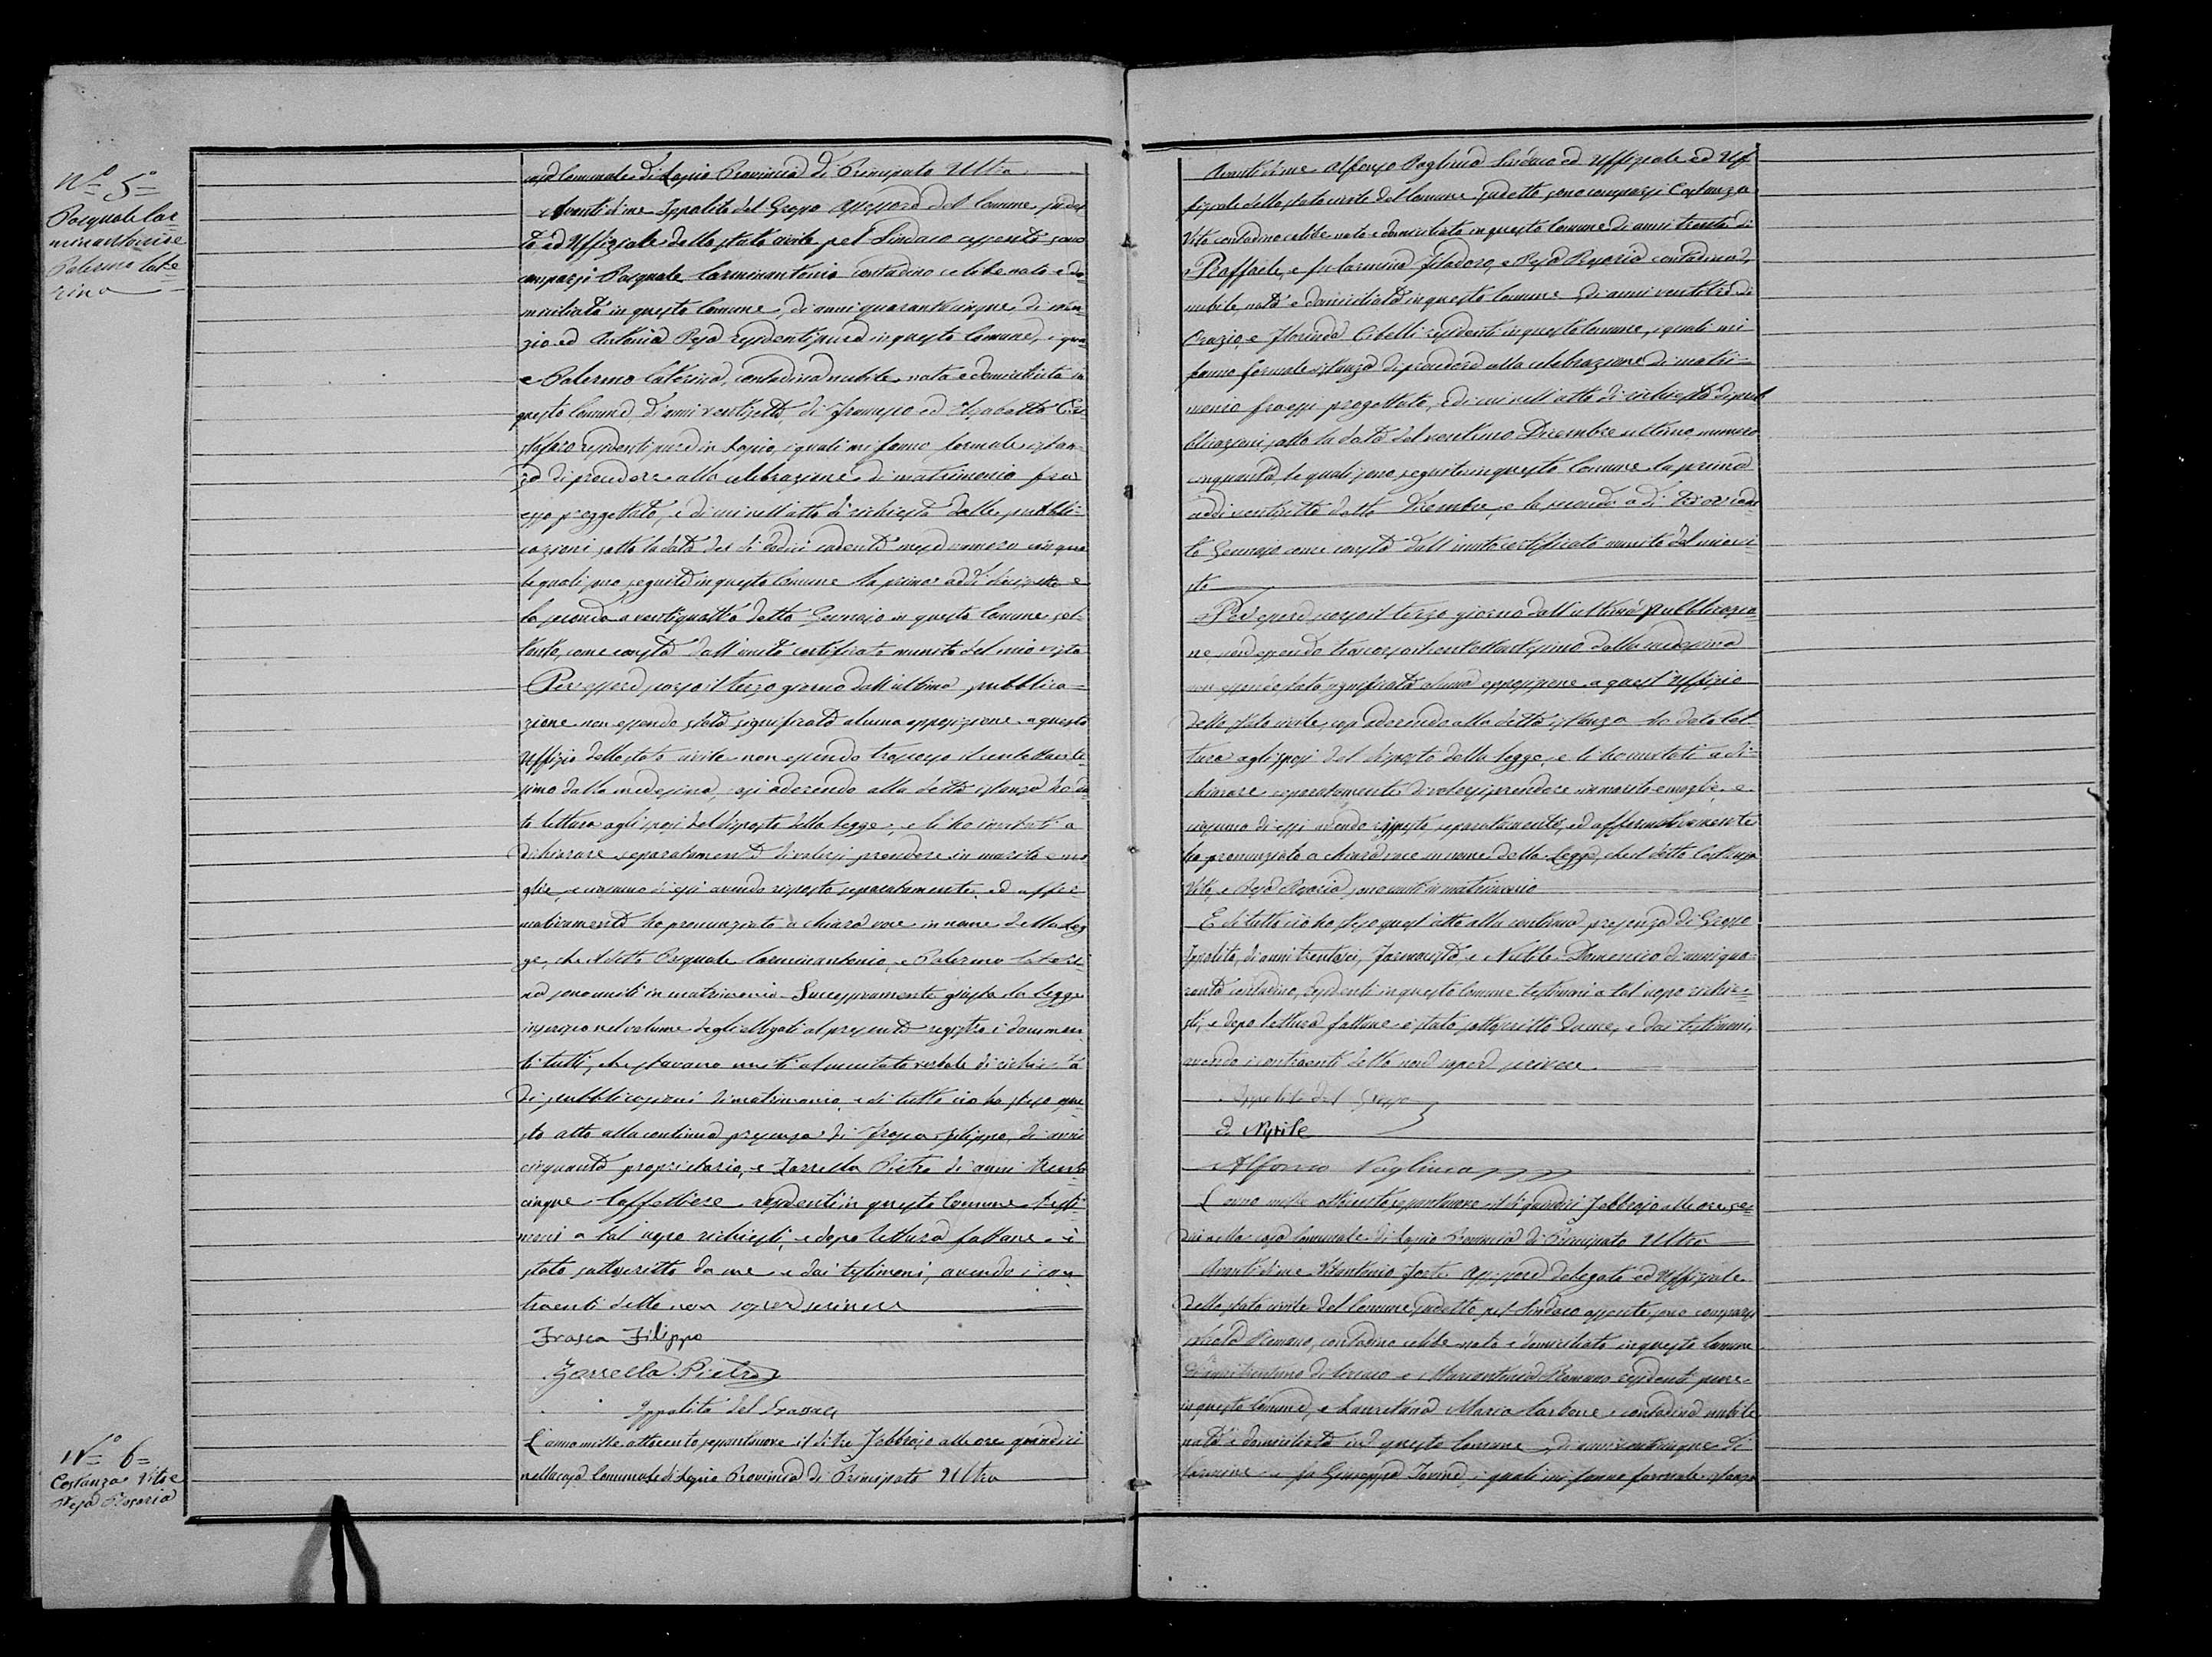 N.° 5.°
Pasquale Car
minantonio e
Palermo Cate
rina
casa Comunale di Lapio Provincia di Principato Ultra
Avanti di me Ippolito del Grosso Assessore del Comune sudet
to ed Uffiziale dello stato civile pel Sindaco assente sono
comparsi Pasquale Carminantonio contadino celibe nato e do
miciliato in questo Comune, di anni quarantacinque, di
zio ed Antonia Resa residenti pure in questo Comune, i qua
e Palermo Caterina, contadina nubile nata e domiciliata in
questo Comune, d'anni ventisette, di Francesco ed Elisabetta
residenti pure in Lapio, i quali mi fanno formale istan
za di procedere alla celebrazione di matrimonio fra
essi progettato, e di cui nell'atto di richiesta delle pubbli
cazioni sotto la data del dì dodici cadente mese numero cinque
le quali sono seguite in questo Comune la prima addì e
la seconda a ventiquattro detto Gennajo in questo Comune sol
tanto, come consta dall'unito certificato munito del mio visto
Per essere scorso il terzo giorno dall'ultima pubblica
zione non essendo stata significata alcuna opposizione a questo
Uffizio dello stato civile non essendo trascorso il centottante
simo dalla medesima, così aderendo alla detta istanza ho da
to lettura agli sposi del disposto della Legge, e li ho invitati a
dichiarare separatamente di volersi prendere in marito e mo
glie, e ciascuno di essi avendo risposto separatamente, ed affer
mativamente ho pronunziato a chiara voce in nome della Leg
ge, che il detto Pasquale Carminantonio, e Palermo Cateri
na sono uniti in matrimonio. Successivamente giusta la Legge
inserisco nel volume degli allegati al presente registro i documen
ti tutti, che stavano uniti al succitato verbale di richiesta
di pubblicazioni di matrimonio, e di tutto ciò ho steso que
sto atto alla continua presenza di Frasca Filippo, di anni
cinquanta proprietario, e Zarrella Pietro di anni trenta
cinque Caffettiere residenti in questo Comune testi
moni a tal uopo richiesti, e dopo lettura fattane è
stato sottoscritto da me e dai testimoni, avendo i con
traenti detto non sapere scrivere
Frasca Filippo
Zarrella Pietro
Ippolito del Grosso
N.° 6
Costanza Vito e
Resa Rosaria
L'anno mille ottocento settantanove il dì tre Febbrajo alle ore quindici
nella casa Comunale di Lapio Provincia di Principato Ultra
Avanti di me Alfonso Vagliuca Sindaco ed Uffiziale ed Uf
fiziale dello stato civile del Comune sudetto sono comparsi Costanza
Vito contadino celibe nato e domiciliato in questo Comune di anni trenta di
Raffaele, e fu Carmina Filadoro, e Resa Rosaria contadina,
nubile, nata e domiciliata in questo Comune, di anni ventitre di
Orazio, e Florinda Cibelli residenti in questo Comune, i quali mi
fanno formale istanza di procedere alla celebrazione di matri
monio fra essi progettato, e di cui nell'atto di richiesta di pub
blicazioni sotto la data del ventuno Dicembre ultimo numero
cinquanta, le quali sono seguite in questo Comune la prima
addì ventisette detto Dicembre, e la seconda a dì tre
to Gennajo come consta dall'unito certificato munito del mio vi
sto
Per essere scorso il terzo giorno dall'ultima pubblicazio
ne non essendo trascorso il centottantesimo dalla medesima
non essendo stata significata alcuna opposizione a quest'Uffizio
dello stato civile, così aderendo alla detta istanza ho dato let
tura agli sposi del disposto della Legge, e li ho invitati a di
chiarare separatamente di volersi prendere in marito e moglie, e
ciascuno di essi avendo risposto separatamente, ed affermativamente
ho pronunziato a chiara voce in nome della Legge, che il detto Costanza
Vito, e Resa Rosaria sono uniti in matrimonio
E di tutto ciò ho steso quest'atto alla continua presenza di Grosso
Ippolito, di anni trentasei, Farmacista, e Nittile Domenico di anni qua
ranta contadino, residenti in questo Comune testimoni a tal uopo richie
sti, e dopo lettura fattane è stato sottoscritto da me, e dai testimoni,
avendo i contraenti detto non sapere scrivere
Ippolito del Grosso
D Nittile
Alfonso Vagliuca
L'anno mille ottocento settantanove il dì quindici Febbrajo alle ore se
dici nella casa Comunale di Lapio Provincia di Principato Ultra
Avanti di me Vitantonio Forte Assessore delegato ed Uffiziale
dello stato civile del Comune sudetto pel Sindaco assente, sono comparsi
Romano, contadino celibe nato e domiciliato in questo Comune
di anni trentuno di Ciriaco e Mariantonia Romano residenti pure
in questo Comune, e Lauretana Maria Carbone contadina nubile
nata e domiciliata in questo Comune, di anni venticinque di
Carmine e fu Giuseppa Iovine, i quali mi fanno formale istanza